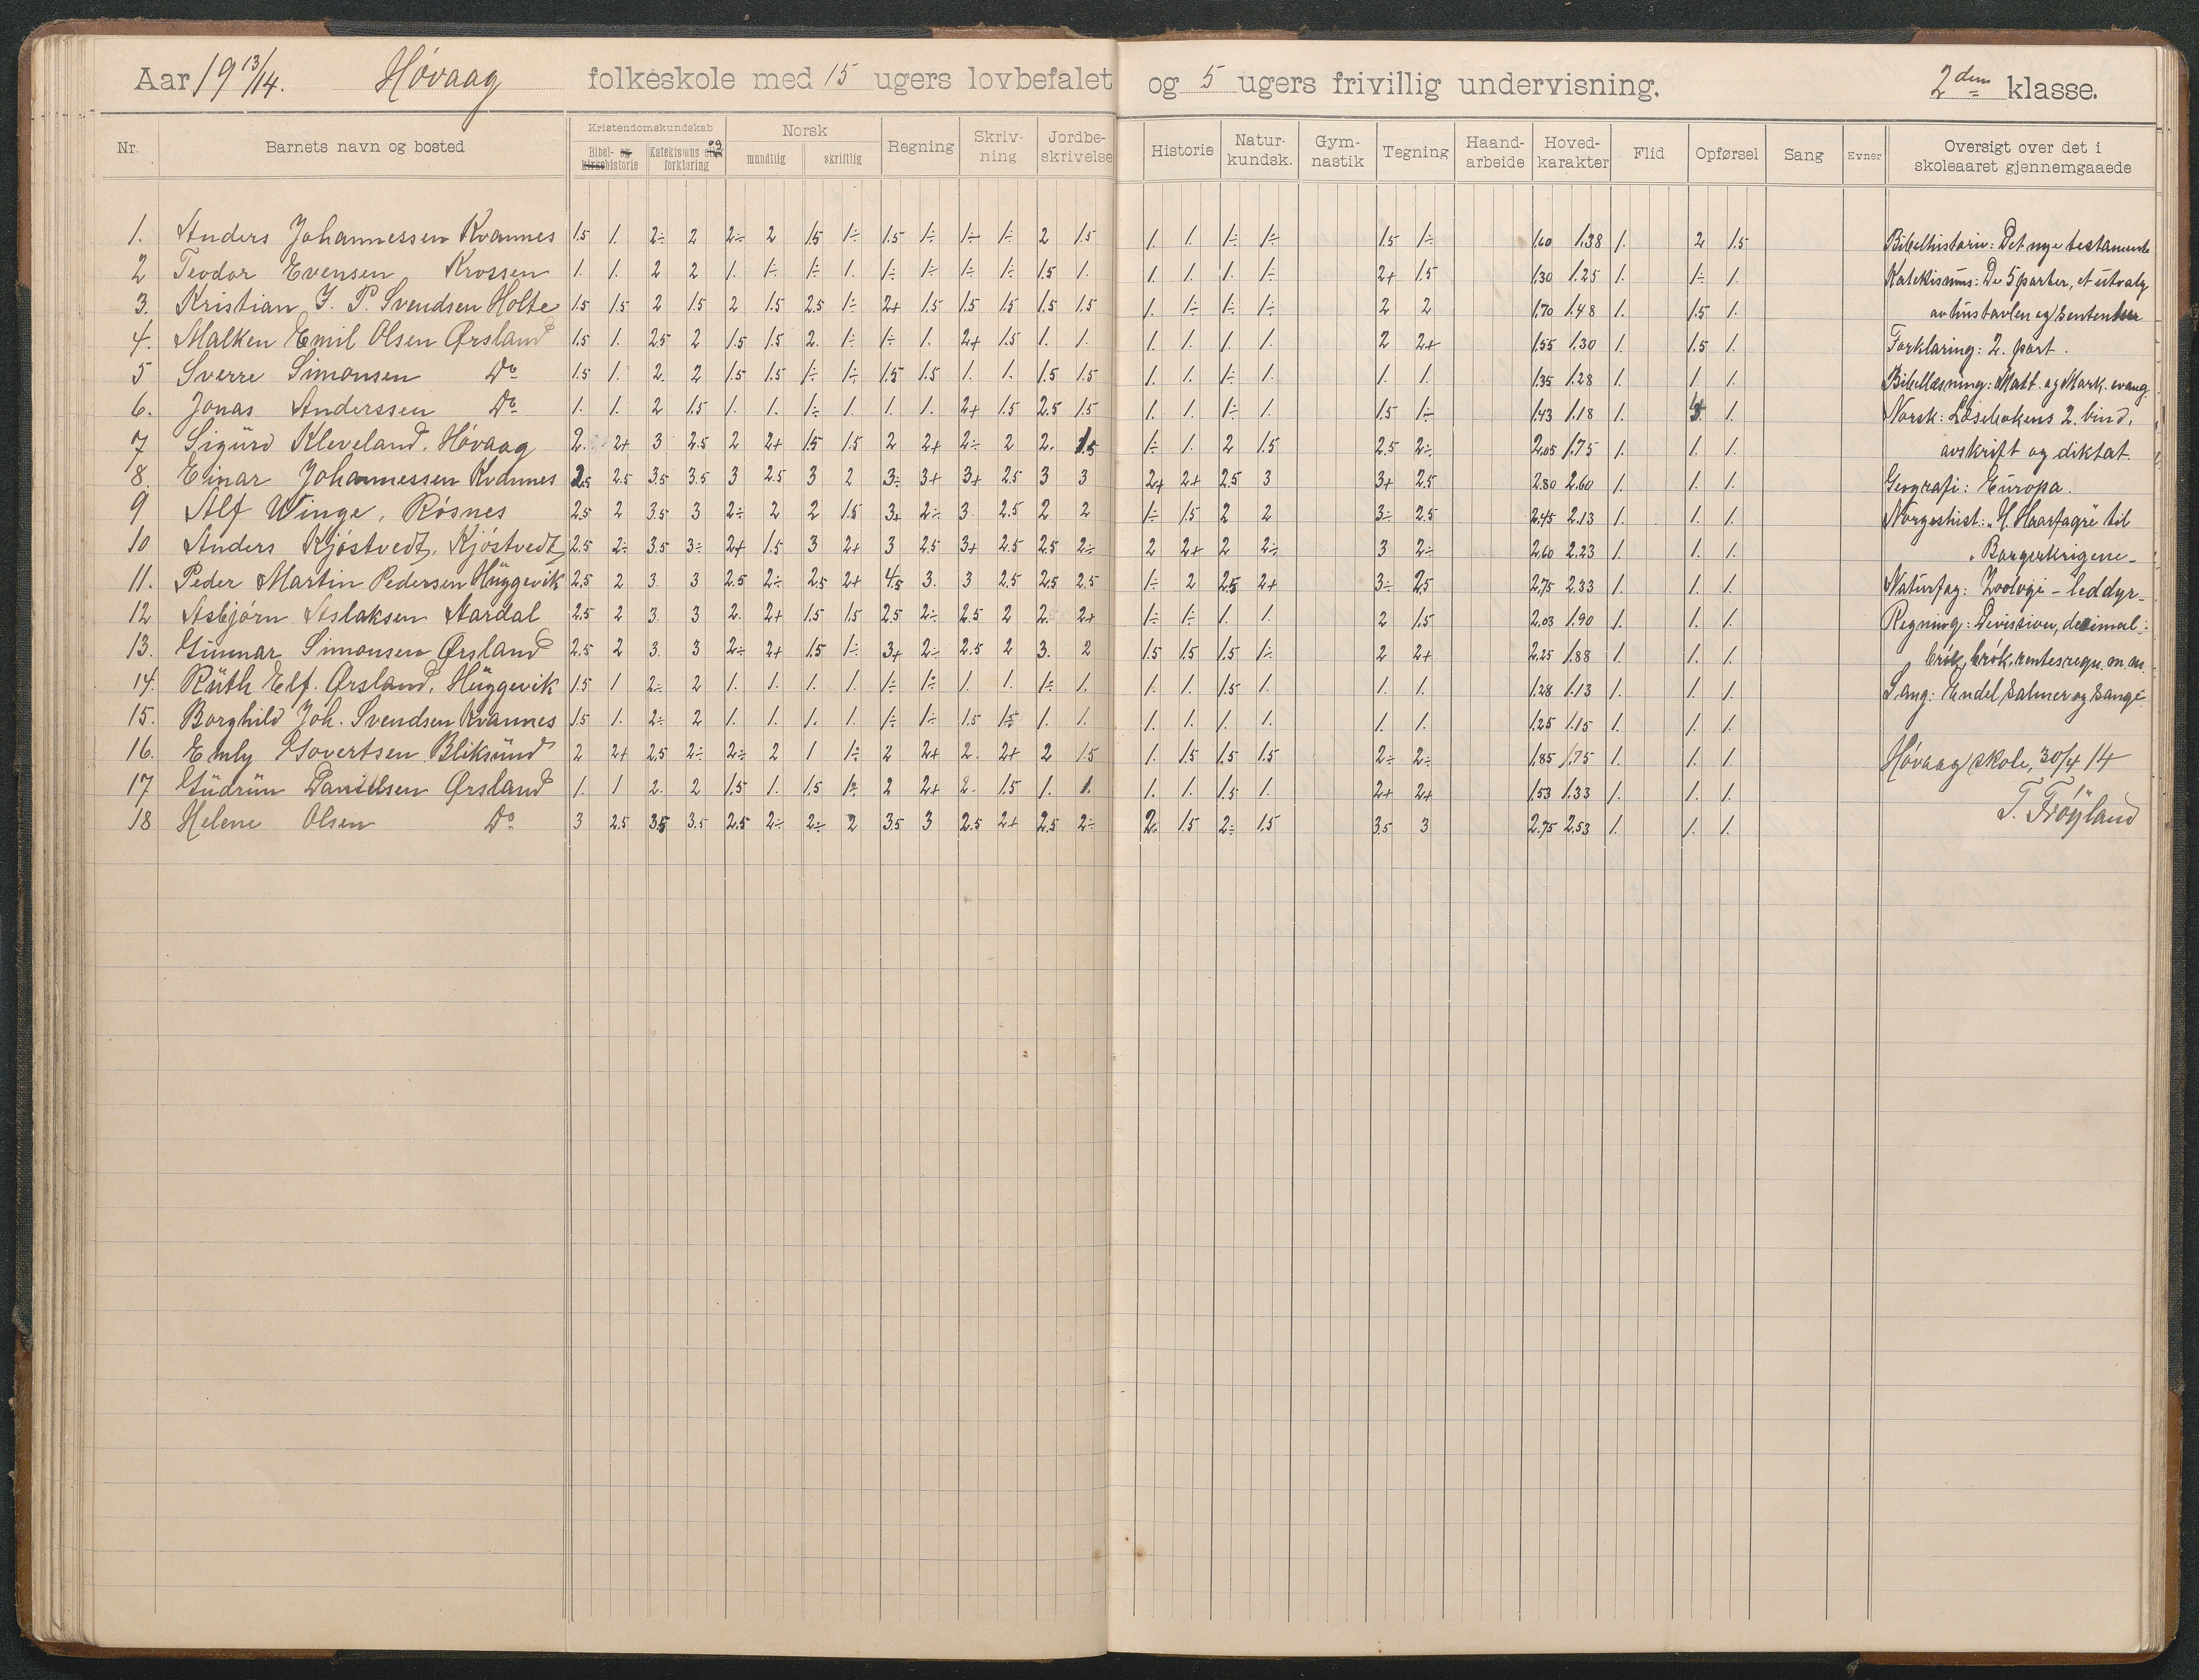 Aar 19 13/14. Høvaag folkeskole med 15 ugers lovbefalet og 5 ugers frivillig undervisning. 2den klasse.
Nr. Barnets navn og bosted Kristendomskundskab Bibel- og kirkehistorie Katekismus og forklaring Norsk mundtlig skriftlig Regning Skrivning Jordbeskrivelse Historie Naturkundsk. Gymnastik Tegning Haandarbeide Hovedkarakter Flid Opførsel Sang Evner Oversigt over det i skoleaaret gjennemgaaede
1. Anders Johannessen Kvannes 1.5 1. 2÷ 2 2÷ 2 1.5 1÷ 1.5 1÷ 1÷ 1÷ 2 1.5 1. 1. 1÷ 1÷ 1.5 1÷ 1.60 1.38 1. 2 1.5 Bibelhistorie: Det nye testamente
2 Teodor Evensen Krossen 1. 1. 2 2 1. 1÷ 1÷ 1. 1÷ 1÷ 1÷ 1÷ 1.5 1. 1. 1. 1. 1÷ 2+ 1.5 1.30 1.25 1. 1÷ 1. Katekismus: De 5 parter, et utvalg
3. Kristian J. P. Svendsen Holte 1.5 1.5 2 1.5 2 1.5 2.5 1÷ 2+ 1.5 1.5 1.5 1.5 1.5 1. 1÷ 1÷ 1÷ 2 2 1.70 1.48 1. 1.5 1. av hustavlen og sentenser
4. Malken Emil Olsen Ørsland 1.5 1. 2.5 2 1.5 1.5 2. 1÷ 1÷ 1. 2+ 1.5 1. 1. 1. 1. 1. 1. 2 2+ 1.55 1.30 1. 1.5 1. Forklaring: 2. part.
5 Sverre Simonsen Do 1.5 1. 2. 2 1.5 1.5 1÷ 1÷ 1.5 1.5 1. 1. 1.5 1.5 1. 1. 1÷ 1. 1. 1. 1.35 1.28 1. 1. 1. Bibellæsning: Matt. og Mark. evang.
6. Jonas Anderssen Do 1. 1. 2 1.5 1. 1. 1÷ 1. 1. 1. 2+ 1.5 2.5 1.5 1. 1. 1÷ 1. 1.5 1÷ 1.43 1.18 1. 1. Norsk: Læsebokens 2. bind,
7 Sigurd Kleveland. Høvaag 2. 2+ 3 2.5 2 2+ 1.5 1.5 2 2+ 2÷ 2 2. 1.5 1÷ 1. 2 1.5 2.5 2÷ 2.05 1.75 1. 1. 1. avskrift og diktat.
8. Einar Johannessen Kvannes 2.5 2.5 3.5 3.5 3 2.5 3 2 3÷ 3+ 3+ 2.5 3 3 2+ 2+ 2.5 3 3+ 2.5 2.80 2.60 1. 1. 1. Geografi: Europa.
9 Alf Winge, Røsnes 2.5 2 3.5 3 2÷ 2 2 1.5 3+ 2÷ 3. 2.5 2 2 1÷ 1.5 2 2 3÷ 2.5 2.45 2.13 1. 1. 1. Norgeshist.: "H. Haarfagre" til
10 Anders Kjøstvedt, Kjøstvedt 2.5 2÷ 3.5 3÷ 2+ 1.5 3 2+ 3 2.5 3+ 2.5 2.5 2÷ 2 2+ 2 2÷ 3 2÷ 2.60 2.23 1. 1. 1. "Borgerkrigene-
11. Peder Martin Pedersen Huggevik 2.5 2 3. 3 2.5 2÷ 2.5 2+ 4.5 3. 3 2.5 2.5 2.5 1÷ 2 2.5 2+ 3÷ 2.5 2.75 2.33 1. 1. 1. Naturfag: Zoologi - leddyr-
12 Asbjørn Aslaksen Aardal 2.5 2 3. 3 2. 2+ 1.5 1.5 2.5 2÷ 2.5 2 2. 2+ 1÷ 1÷ 1. 1. 2 1.5 2.03 1.90 1. 1. 1. Regning: Division, desimal:
13. Gunnar Simonsen Ørsland 2.5 2 3. 3 2÷ 2+ 1.5 1÷ 3+ 2÷ 2.5 2 3. 2 1.5 1.5 1.5 1÷ 2 2+ 2.25 1.88 1. 1. 1. brøk, brøk, rentesregn. m.m.
14. Ruth Elf. Ørsland, Huggevik 1.5 1 2÷ 2 1. 1. 1. 1. 1÷ 1÷ 1. 1. 1÷ 1. 1. 1. 1.5 1. 1. 1. 1.28 1.13 1. 1. 1. Sang: Endel salmer og sange-
15. Borghild Joh. Svendsen Kvannes 1.5 1. 2÷ 2 1. 1. 1. 1. 1÷ 1÷ 1.5 1.5 1. 1. 1. 1. 1. 1. 1. 1. 1.25 1.15 1. 1. 1.
16. Emly Govertsen Bliksund 2 2+ 2.5 2÷ 2÷ 2 1 1÷ 2 2+ 2. 2+ 2 1.5 1. 1.5 1.5 1.5 2÷ 2÷ 1.85 1.75 1. 1. 1. Høvaag skole, 30/4 14
17 Gudrun Danielsen Ørsland 1. 1 2. 2 1.5 1. 1.5 1÷ 2 2+ 2. 1.5 1. 1. 1. 1. 1.5 1. 2+ 2+ 1.53 1.33 1. 1. 1. T. Frøyland
18 Helene Olsen Do 3 2.5 3.5 3.5 2.5 2÷ 2÷ 2 3.5 3 2.5 2+ 2.5 2÷ 2. 1.5 2÷ 1.5 3.5 3 2.75 2.53 1. 1. 1.